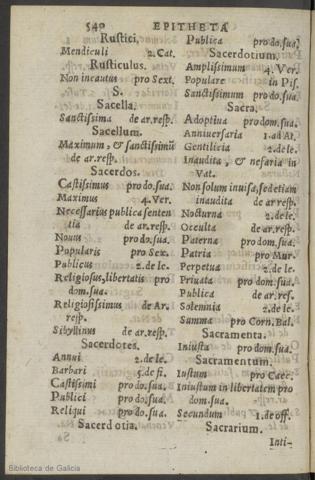 540 EPITHETA
Rustici.
Mendiculi 2.Cat.
Rusticulus.
Non incautus pro Sext.
S.
Sacella.
Sanctissima de ar.resp.
Sacellum.
Maximum, & sanctissimũ
de ar.resp.
Sacerdos.
Castissimus pro do.sua.
Maximus 4.Ver.
Necessarius publica senten
tia de ar.resp.
Nouus pro do.sua.
Popularis pro Sex.
Publicus 2.de le.
Religiosus, libertatis pro
dom.sua.
Religiosissimus de Ar.
resp.
Sibyllinus de ar.resp.
Sacerdotes.
Annui 2.de le.
Barbari 5.de fi.
Castissimi pro do.sua.
Publici pro do.sua.
Reliqui pro do.sua.
Sacerdotia.
Publica pro do.sua.
Sacerdotium.
Amplissimum 4.Ver.
Populare in Pis.
Sanctissimum pro do.sua.
Sacra.
Adoptiua pro dom.sua.
Anniuersaria 1.ad At.
Gentilicia 2.de le.
Inaudita, & nefaria in
Vat.
Non solum inuisa, sed etiam
inaudita de ar resp.
Nocturna 2.de le.
Occulta de ar.resp.
Paterna pro dom.sua.
Patria pro Mur.
Perpetua 2.de le.
Priuata pro dom.sua.
Publica de ar.res.
Solemnia 2.de le.
Summa pro Corn.Bal.
Sacramenta.
Iniusta pro dom.sua.
Sacramentum.
Iustum pro Caec.
Iniustum in libertatem pro
dom.sua.
Secundum 1.de off.
Sacrarium.
Inti-
Biblioteca de Galicia